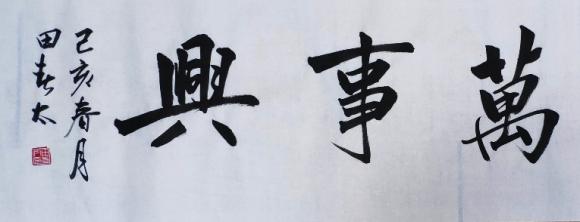 萬事興
己亥春月
田春太